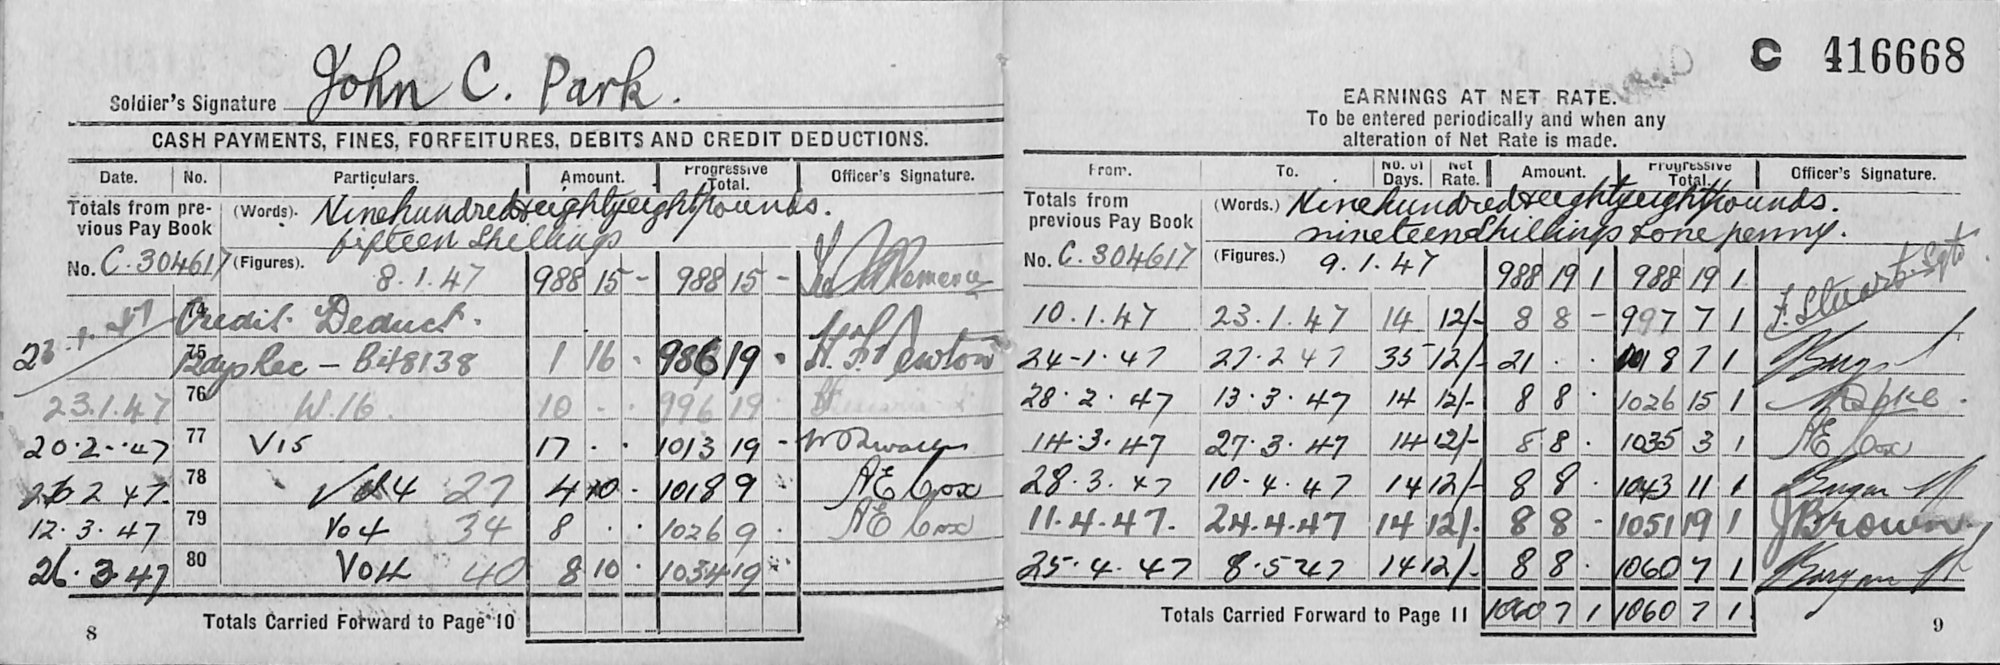 John C. Park.
Soldier's Signature
CASH PAYMENTS, FINES, FORFEITURES, DEBITS AND CREDIT DEDUCTIONS.
Date. No. Particulars. Amount. Progressive Total. Officer's Signature.
Totals from pre-vious Pay Book (Words). Nine hundred & eighty eight pounds.
fifteen Shillings
No. C. 304617 (Figures). 8.1.47 988 15 - 988 15 -
74 Credit Deduct.
23.1.47 75 12 days Rec - B48138 1 16 - 986 19 - H. F. Newton
23.1.47 76 W.16 10 - - 996 19 -
20.2.47 77 V15 17 . . 1013 19 -
26 2 47 78 Vo4 27 4 10 . 1018 9 AE Cox
12.3.47 79 Vo4 34 8 . . 1026 9 . AE Cox
26.3.47 80 Vo4 40 8 10 . 1034 19 .
Totals Carried Forward to Page 10
8
C 416668
EARNINGS AT NET RATE.
To be entered periodically and when any
alteration of Net Rate is made.
From. To. No. of Days. Net Rate. Amount. Progressive Total. Officer's Signature.
Totals from previous Pay Book (Words.) Nine hundred & eighty eight pounds.
nineteen Shillings & one penny.
No. C. 304617 (Figures.) 9.1.47 988 19 1 988 19 1 F. Stuart. Sgt
10.1.47 23.1.47 14 12/- 8 8 - 997 7 1
24-1.47 27.2 47 35 12/- 21 . . 1018 7 1
28.2.47 13.3.47 14 12/- 8 8 . 1026 15 1
14.3.47 27.3.47 14 12/- 8 8 . 1035 3 1 AE Cox
28.3.47 10.4.47 14 12/- 8 8 . 1043 11 1
11.4.47. 24.4.47 14 12/- 8 8 - 1051 19 1 J Brown
25.4.47 8.5 47 14 12/- 8 8 . 1060 7 1
Totals Carried Forward to Page 11 1060 7 1 1060 7 1
9